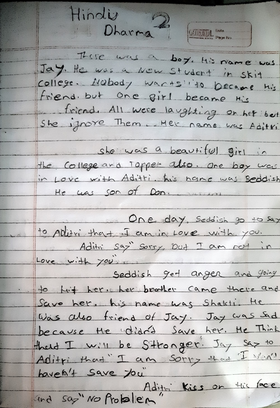 Hindu 2
Dharma
There was a boy. His name was
Jay. He was a New student in Skit
College. Nobody wants to became His
friend. but one girl became His
friend. All were laughing on her but
she ignore Them. Her name was Aditri
she was a beautiful girl in
the College and Topper also. One boy was
in Love with Aditri. his name was Seddish
He was son of Don.
One day, Seddish go to say
to Aditri that, I am in Love with you.
Aditri say" Sorry But I am not in
Love with you".
Seddish get anger and going
to hit her. her brother came there and
Save her. his name was Shakti. He
was also friend of Jay. Jay was sad
because He didn't Save her. He Think
that I will be Stronger. Jay say to
Aditri that" I am Sorry that I
haven't Save you"
Aditri Kiss on His face
and say "No Problem"